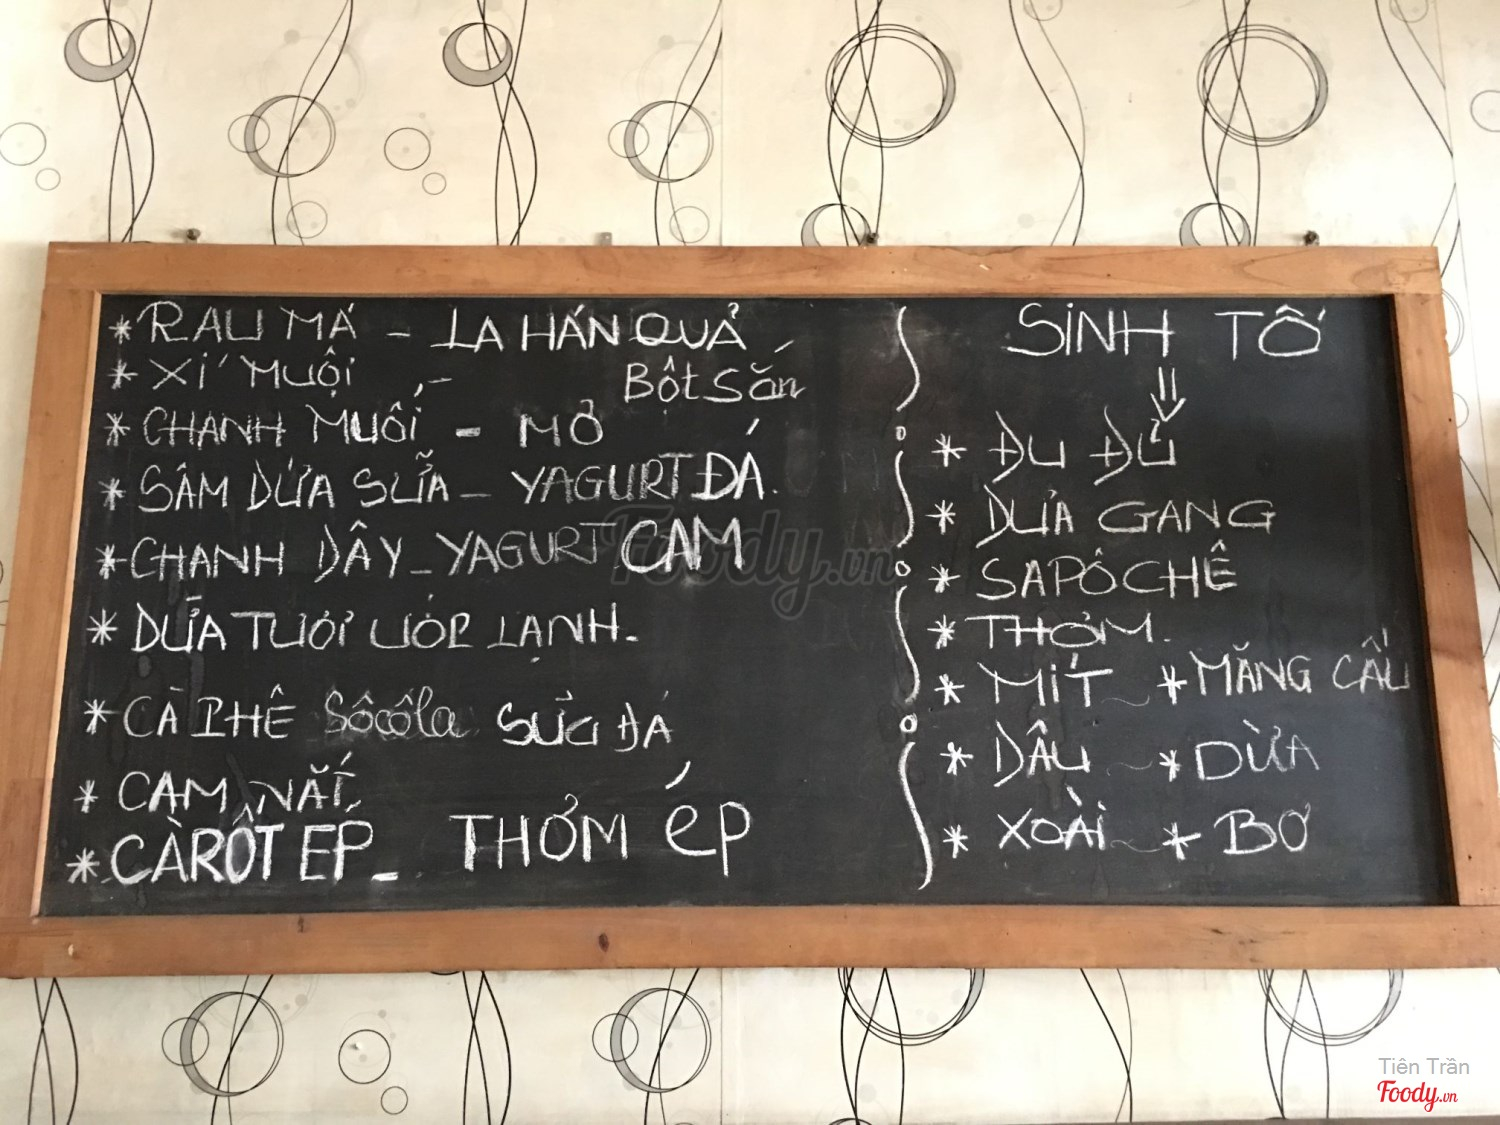 * RAU MÁ - LA HÁN QUẢ
* XÍ MUỘI - BỘT SẮN
* CHANH MUỐI - MƠ
* SÂM DỨA SỮA - YAGURT ĐÁ.
* CHANH DÂY - YAGURT CAM
* DỪA TƯƠI ƯỚP LẠNH.
* CÀ PHÊ Sôcôla SỮA ĐÁ
* CAM VẮT
* CÀRỐT ÉP - THƠM ÉP
SINH TỐ
* ĐU ĐỦ
* DƯA GANG
* SAPÔCHÊ
* THƠM.
* MÍT * MÃNG CẦU
* DÂU * DỪA
* XOÀI * BƠ
Foody.vn
Tiên Trần
Foody.vn